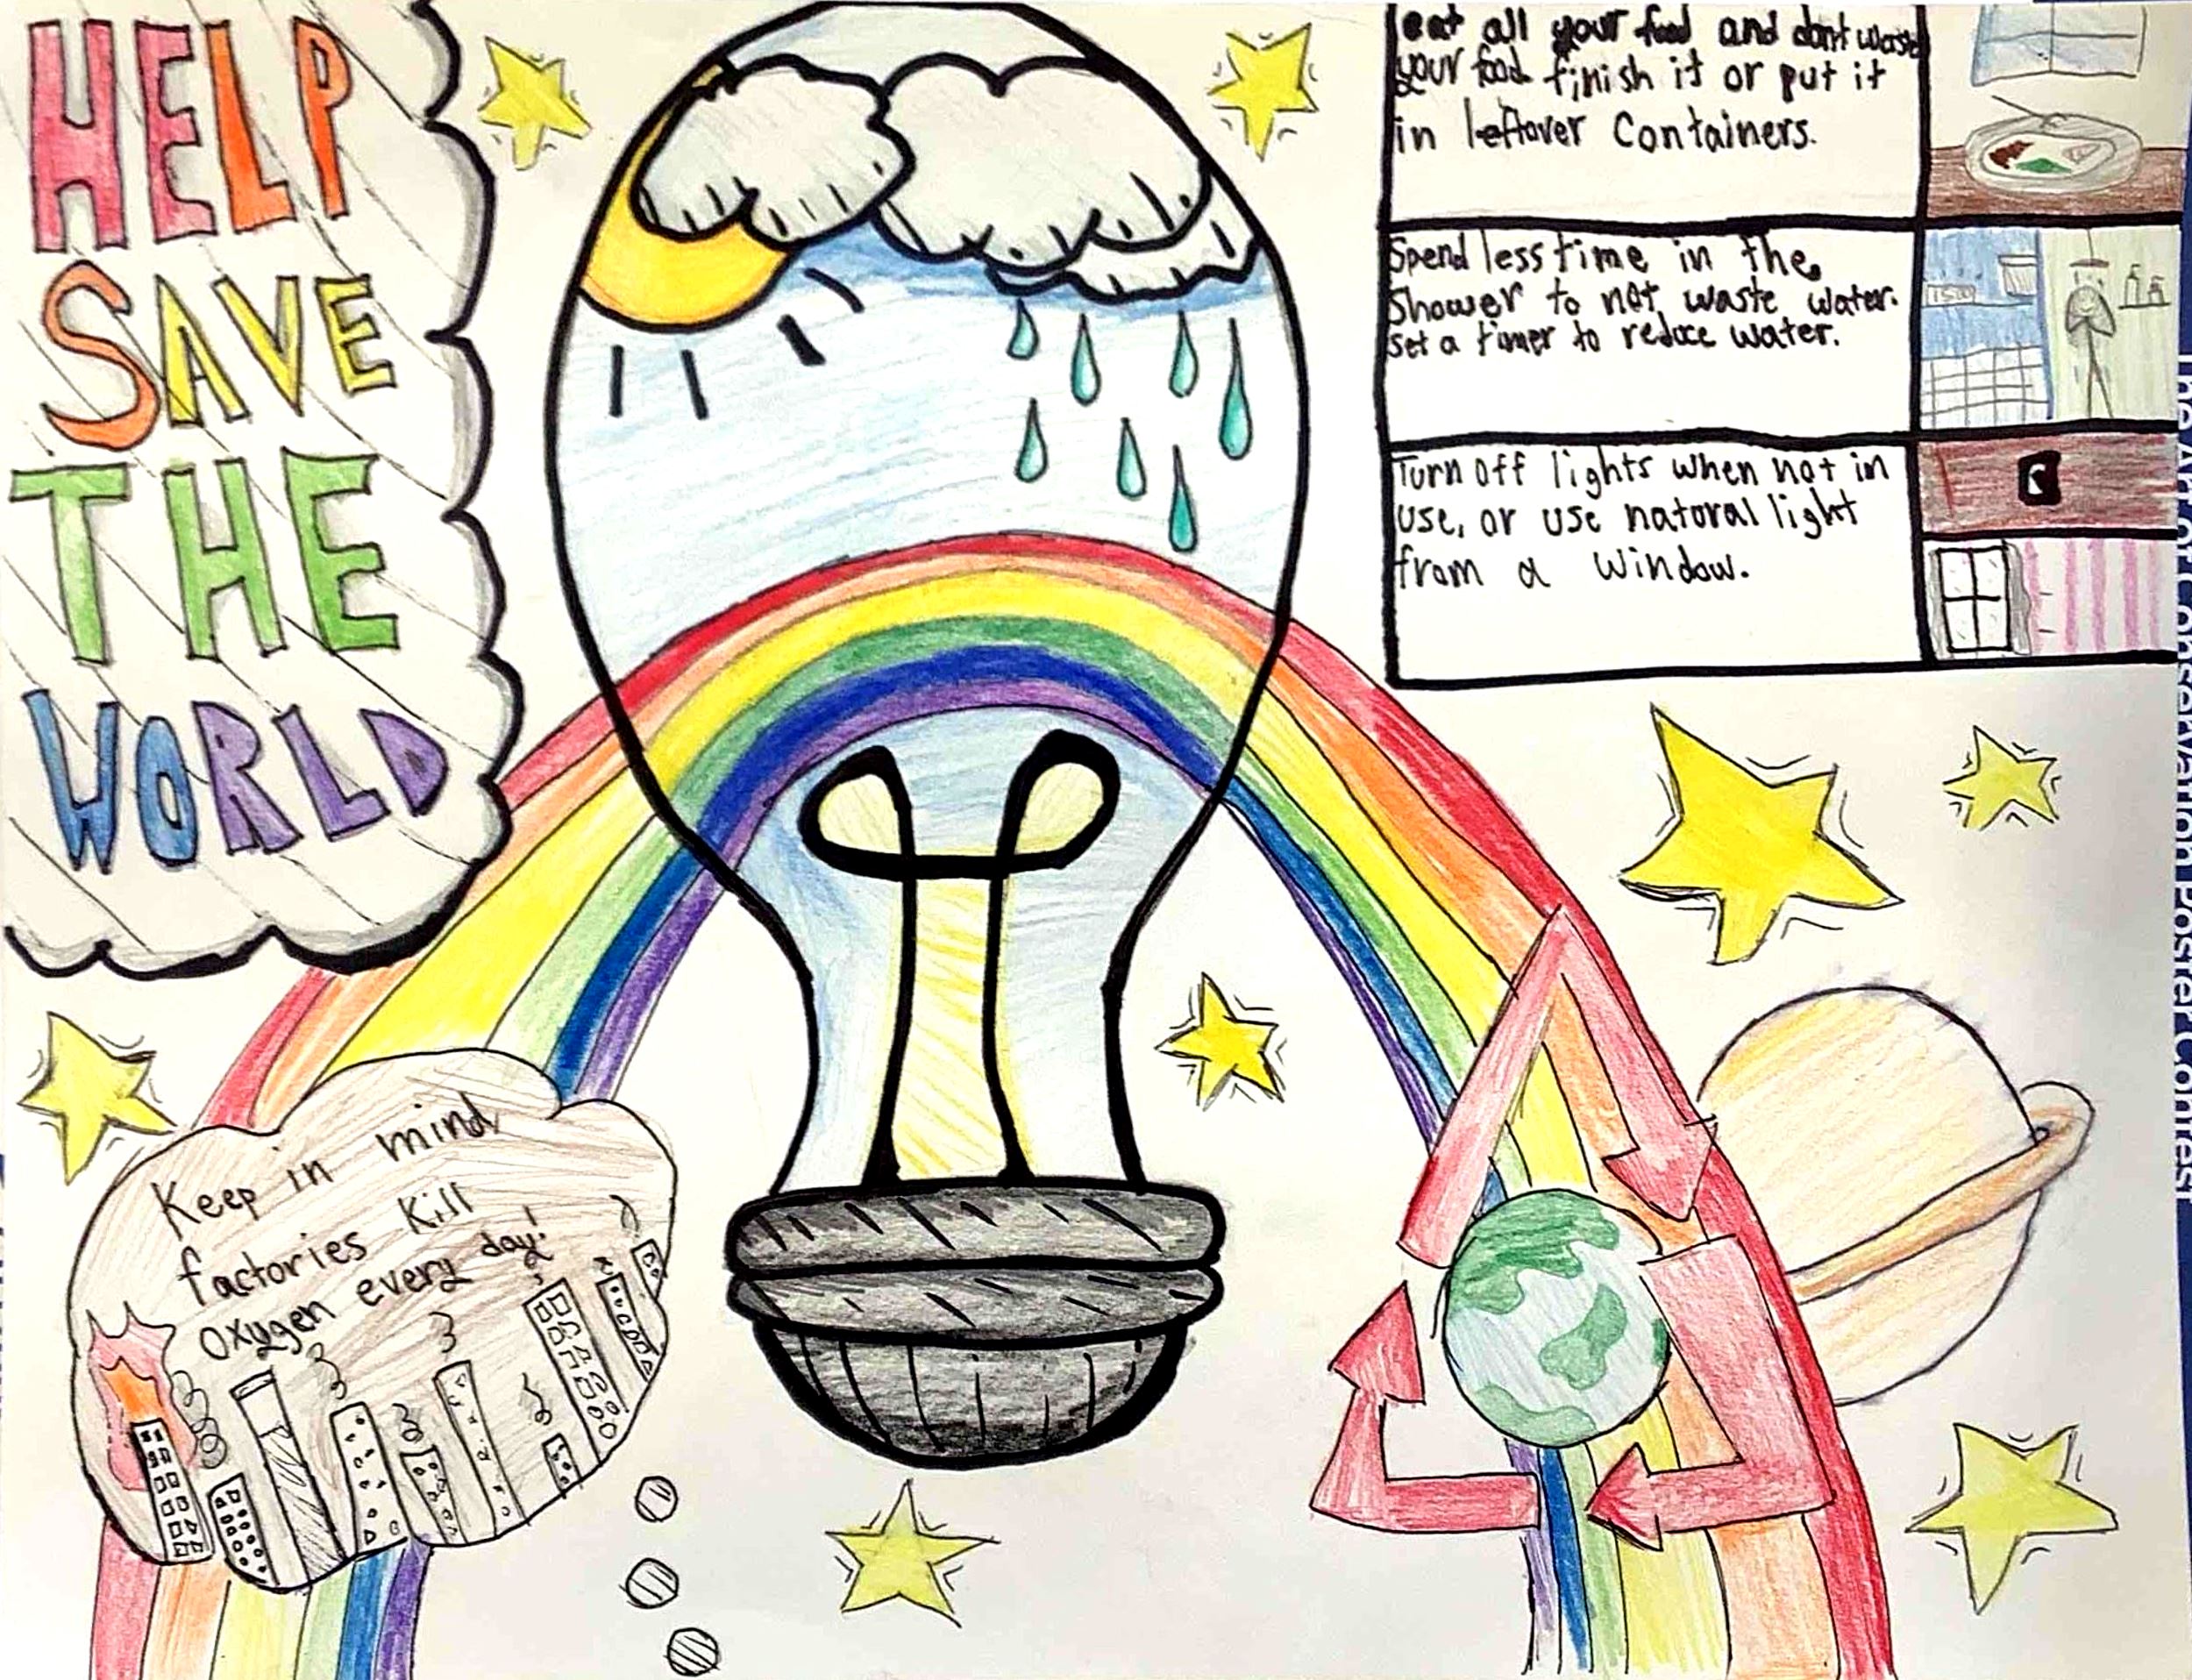 HELP
SAVE
THE
WORLD
eat all your food and dont waste
your food finish it or put it
in leftover containers.
Spend less time in the
Shower to not waste water.
set a timer to reduce water.
Turn off lights when not in
use, or use natoral light
from a window.
Keep in mind,
factories kill
oxygen every day!
The Art of Conservation Poster Contest